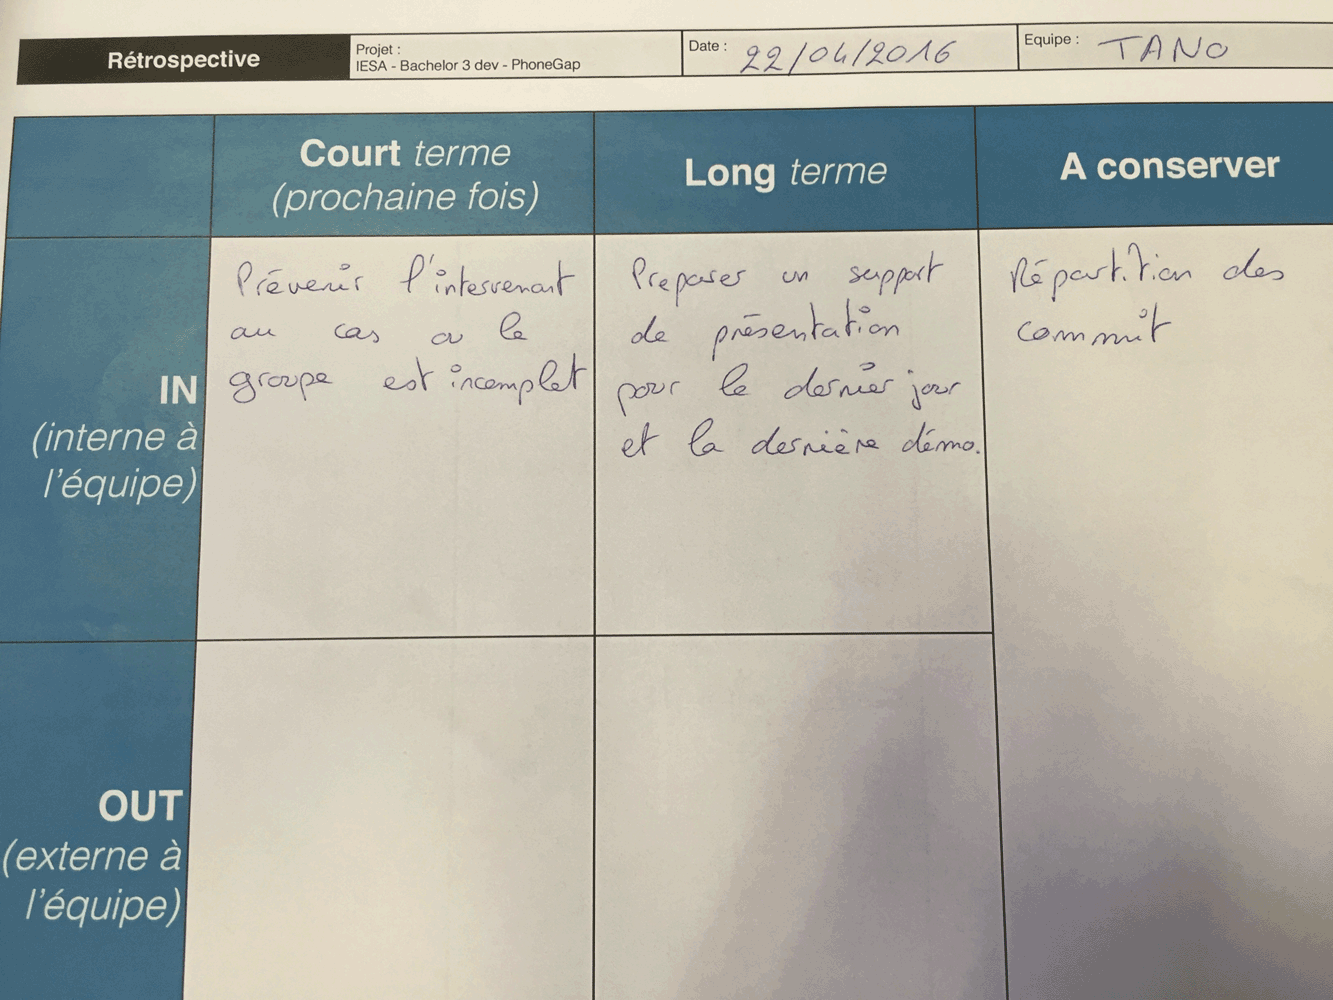 Rétrospective
Projet :
IESA - Bachelor 3 dev - PhoneGap
Date : 22/04/2016
Equipe : TANO
Court terme
(prochaine fois)
Long terme
A conserver
IN
(interne à
l'équipe)
Prévenir l'intervenant
au cas ou le
groupe est incomplet
Preparer un support
de présentation
pour le dernier jour
et la dernière démo.
Répartition des
commit
OUT
(externe à
l'équipe)